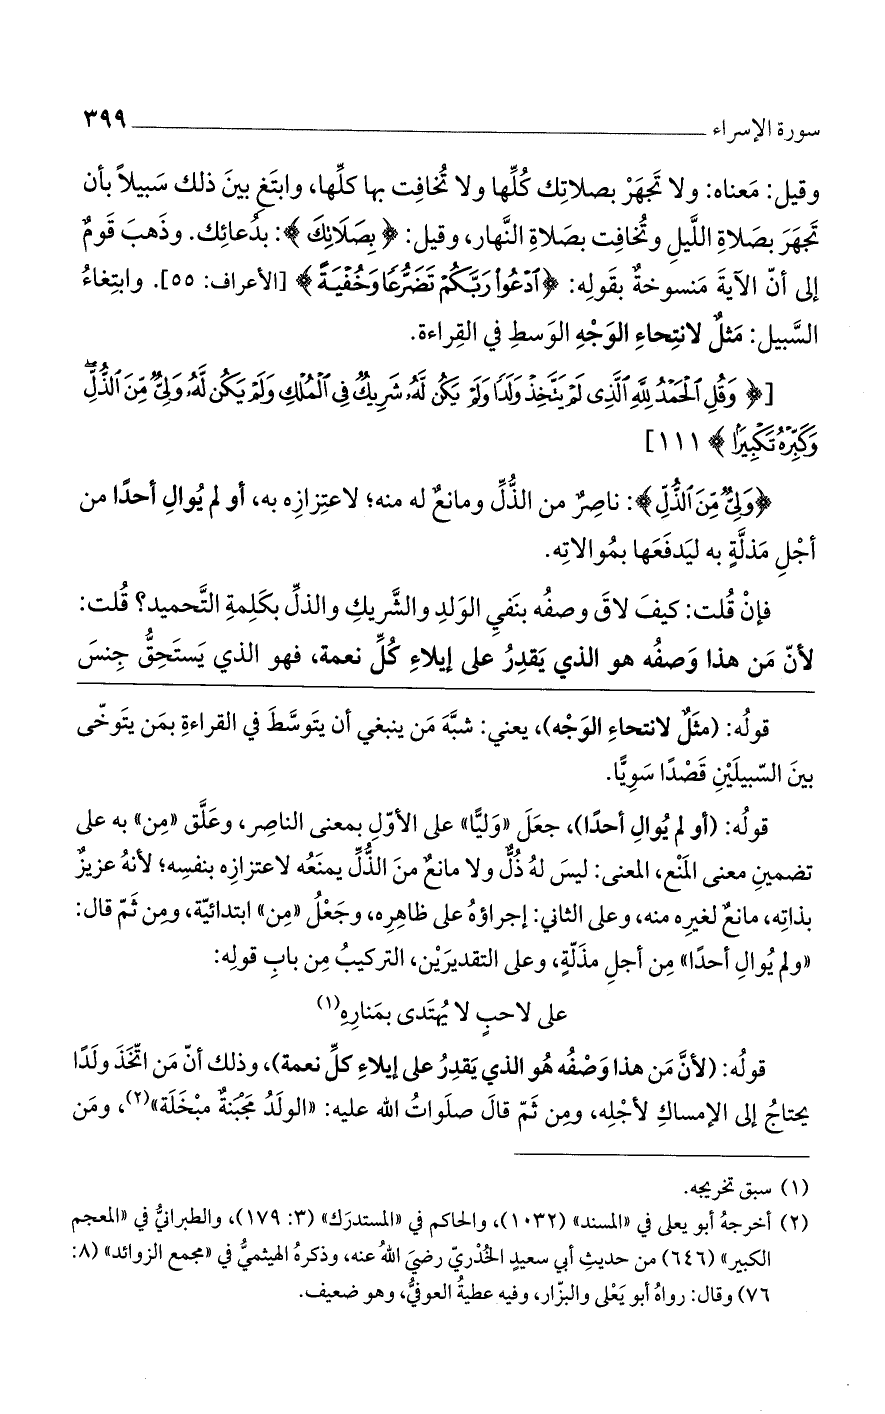 سورة الإسراء ٣٩٩
وقيل: مَعناه: ولا تَجهَرْ بصلاتِك كُلِّها ولا تُخافِت بها كلِّها، وابتَغِ بينَ ذلك سَبيلاً بأن
تَجهَرَ بصَلاةِ اللَّيلِ وتُخافِت بصَلاةِ النَّهار، وقيل: ﴿بِصَلَاتِكَ﴾: بدُعائِك. وذَهبَ قَومٌ
إلى أنّ الآيةَ مَنسوخةٌ بقَولِه: ﴿ٱدْعُوا۟ رَبَّكُمْ تَضَرُّعًا وَخُفْيَةً﴾ [الأعراف: ٥٥]. وابتِغاءُ
السَّبيل: مَثلٌ لانتِحاءِ الوَجْهِ الوَسطِ في القِراءة.
[﴿وَقُلِ ٱلْحَمْدُ لِلَّهِ ٱلَّذِى لَمْ يَتَّخِذْ وَلَدًا وَلَمْ يَكُن لَّهُۥ شَرِيكٌ فِى ٱلْمُلْكِ وَلَمْ يَكُن لَّهُۥ وَلِىٌّ مِّنَ ٱلذُّلِّ ۖ
وَكَبِّرْهُ تَكْبِيرًۢا﴾ ١١١]
﴿وَلِىٌّ مِّنَ ٱلذُّلِّ﴾: ناصِرٌ من الذُّلِّ ومانعٌ له منه؛ لاعتِزازِه به، أو لم يُوالِ أحدًا من
أجْلِ مَذلَّةٍ به ليَدفَعَها بمُوالاتِه.
فإنْ قُلت: كيفَ لاقَ وصفُه بنَفيِ الوَلدِ والشَّريكِ والذلِّ بكَلِمةِ التَّحميد؟ قُلت:
لأنّ مَن هذا وَصفُه هو الذي يَقدِرُ على إيلاءِ كُلِّ نعمة، فهو الذي يَستَحِقُّ جِنسَ
قولُه: (مثَلٌ لانتحاءِ الوَجْه)، يعني: شبَّهَ مَن ينبغي أن يتَوسَّطَ في القراءةِ بمَن يتَوخّى
بينَ السّبيلَيْنِ قَصْدًا سَويًّا.
قولُه: (أو لم يُوالِ أحدًا)، جعَلَ «وَليًّا» على الأوّلِ بمعنى الناصِر، وعَلَّق «مِن» به على
تضمينِ معنى المَنْع، المعنى: ليسَ لهُ ذُلٌّ ولا مانعٌ منَ الذُّلِّ يمنَعُه لاعتزازِه بنفسِه؛ لأنهُ عزيزٌ
بذاتِه، مانعٌ لغيرِه منه، وعلى الثاني: إجراؤهُ على ظاهرِه، وجَعْلُ «مِن» ابتدائيّة، ومِن ثَمّ قال:
«ولم يُوالِ أحدًا» مِن أجلِ مذلّةٍ، وعلى التقديرَيْن، التركيبُ مِن بابِ قولِه:
على لاحبٍ لا يُهتَدى بمَنارِهِ(١)
قولُه: (لأنَّ مَن هذا وَصْفُه هُو الذي يَقدِرُ على إيلاءِ كلِّ نعمة)، وذلك أنّ مَن اتّخَذَ ولَدًا
يحتاجُ إلى الإمساكِ لأجْلِه، ومِن ثَمّ قالَ صلَواتُ الله عليه: «الولَدُ مَجْبَنةٌ مبْخَلَة»(٢)، ومَن
(١) سبق تخريجه.
(٢) أخرجهُ أبو يعلى في «المسند» (١٠٣٢)، والحاكم في «المستدرَك» (٣: ١٧٩)، والطبرانيُّ في «المعجم
الكبير» (٦٤٦) من حديثِ أبي سعيدٍ الخُدْريّ رضيَ اللهُ عنه، وذكرهُ الهيثميُّ في «مجمع الزوائد» (٨:
٧٦) وقال: رواهُ أبو يَعْلى والبزّار، وفيه عطيةُ العوفيُّ، وهو ضعيف.